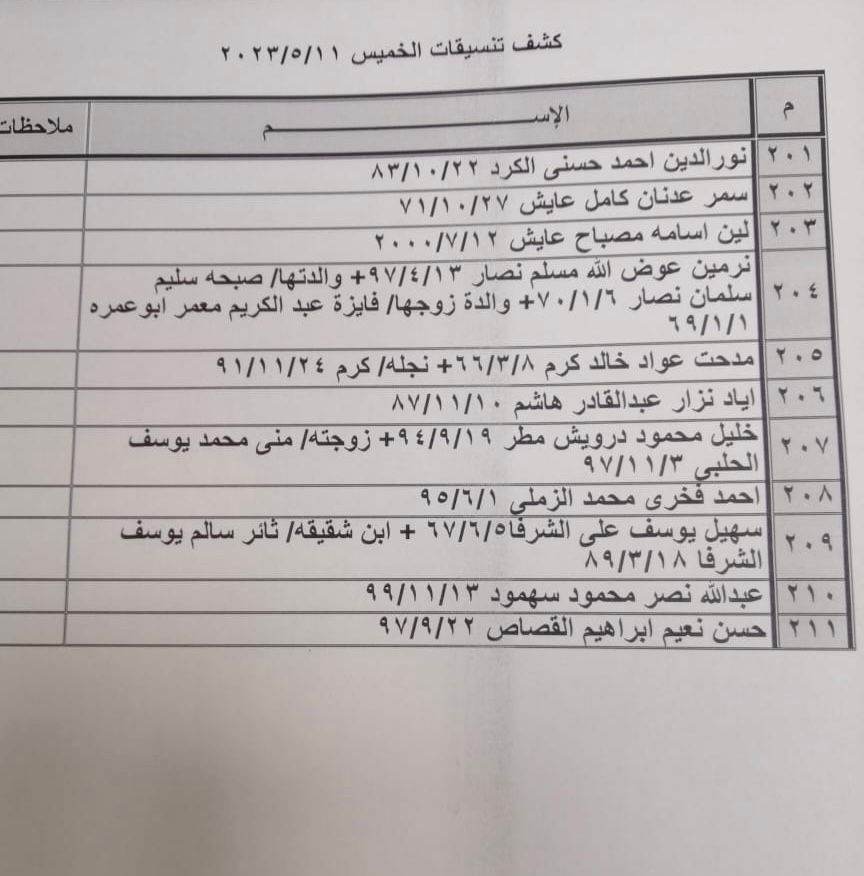 كشف تنسيقات الخميس ٢٠٢٣/٥/١١
م الإســـــــــــم ملاحظات
٢٠١ نورالدين احمد حسنى الكرد ٨٣/١٠/٢٢
٢٠٢ سمر عدنان كامل عايش ٧١/١٠/٢٧
٢٠٣ لين اسامه مصباح عايش ٢٠٠٠/٧/١٢
٢٠٤ نرمين عوض الله مسلم نصار ٩٧/٤/١٣+ والدتها/ صبحه سليم
سلمان نصار ٧٠/١/٦+ والدة زوجها/ فايزة عبد الكريم معمر ابوعمره
٦٩/١/١
٢٠٥ مدحت عواد خالد كرم ٦٦/٣/٨+ نجله/ كرم ٩١/١١/٢٤
٢٠٦ اياد نزار عبدالقادر هاشم ٨٧/١١/١٠
٢٠٧ خليل محمود درويش مطر ٩٤/٩/١٩+ زوجته/ منى محمد يوسف
الحلبي ٩٧/١١/٣
٢٠٨ احمد فخرى محمد الزملي ٩٥/٦/١
٢٠٩ سهيل يوسف على الشرفا٦٧/٦/٥ + ابن شقيقه/ ثائر سالم يوسف
الشرفا ٨٩/٣/١٨
٢١٠ عبدالله نصر محمود سهمود ٩٩/١١/١٣
٢١١ حسن نعيم ابراهيم القصاص ٩٧/٩/٢٢